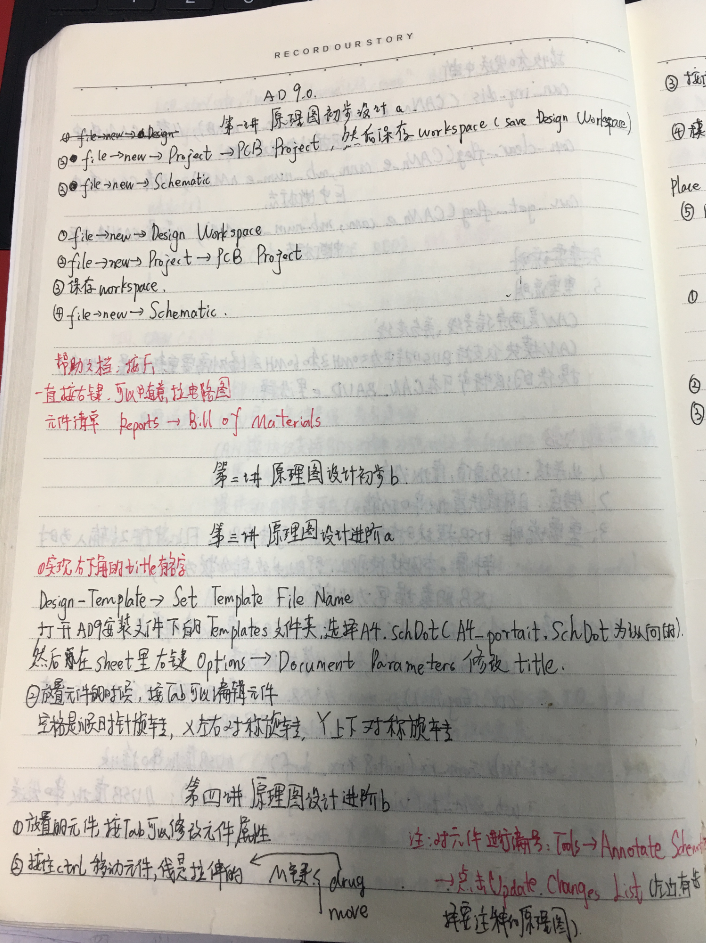 RECORD OUR STORY
AD 9.0.
第一讲 原理图初步设计 a
① file→new→Design
②• file→new→Project→PCB Project, 然后保存 workspace (save Design Workspace)
③• file→new→Schematic
① file→new→Design Workspace
② file→new→Project→PCB Project
③ 保存 workspace.
④ file→new→Schematic.
帮助文档, 按F1
一直按右键, 可以随意拉电路图
元件清单 Reports → Bill of Materials
第二讲 原理图设计初步 b
第三讲 原理图设计进阶 a
①实现右下角的title
Design-Template→ Set Template File Name
打开AD9安装文件下的Templates文件夹, 选择A4.SchDot (A4_portait.SchDot 为纵向的).
然后在sheet里右键 Options→Document Parameters 修改 title.
②放置元件的时候, 按Tab可以编辑元件
空格是逆时针旋转, X左右对称旋转, Y上下对称旋转
第四讲 原理图设计进阶b
①放置的元件, 按Tab可以修改元件属性
②按住ctrl 移动元件, 线是拉伸的 M键 drug
move
注: 对元件进行编号: Tools→Annotate Schem
→点击Update Changes List (左边有
择要注释的原理图)
③ 按
④
Place
⑤
①
②
③